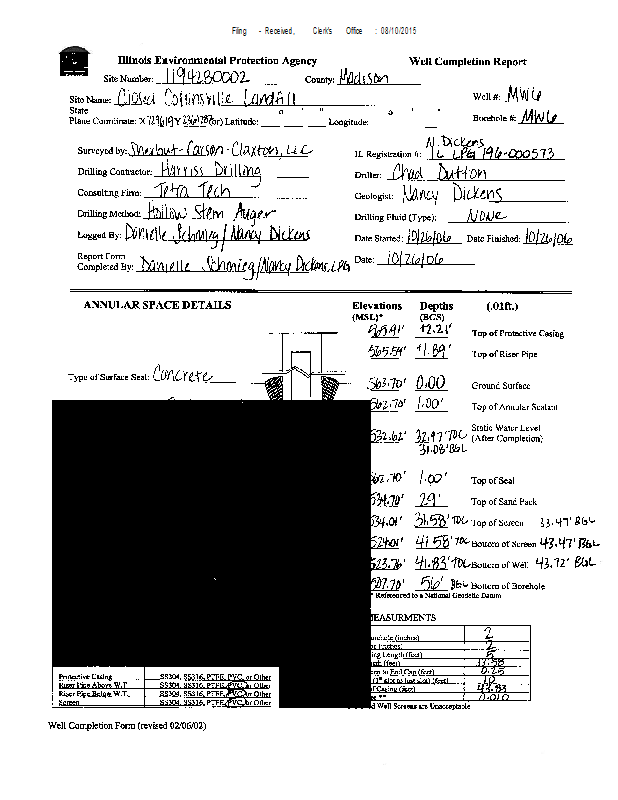 Filing - Received, Clerk's Office : 08/10/2015
Illinois Environmental Protection Agency Well Completion Report
Site Number: 1194280002 County: Madison
Site Name: Closed Collinsville Landfill Well #: MW6
State
Plane Coordinate: X Y (or) Latitude: ° ' " Longitude: ° ' " Borehole #: MW6
Surveyed by: Sherbut-Carson-Claxton, LLC
N. Dickens
IL Registration #: IL LPG 196-000573
Drilling Contractor: Harriss Drilling Driller: Chad Dutton
Consulting Firm: Tetra Tech Geologist: Nancy Dickens
Drilling Method: Hollow Stem Auger Drilling Fluid (Type): None
Logged By: Danielle Schmieg / Nancy Dickens Date Started: 10/26/06 Date Finished: 10/26/06
Report Form
Completed By: Danielle Schmieg/Nancy Dickens, LPG Date: 10/26/06
ANNULAR SPACE DETAILS Elevations Depths (.01ft.)
(MSL)* (BGS)
565.91' +2.21' Top of Protective Casing
565.59' +1.89' Top of Riser Pipe
Type of Surface Seal: Concrete
563.70' 0.00 Ground Surface
562.70' 1.00' Top of Annular Sealant
532.62' 32.97' TOC Static Water Level
31.08' BGL (After Completion)
562.70' 1.00' Top of Seal
534.70' 29' Top of Sand Pack
534.01' 31.58' TOC Top of Screen 33.47' BGL
524.01' 41.58' TOC Bottom of Screen 43.47' BGL
523.76' 41.83' TOC Bottom of Well 43.72' BGL
507.70' 56' BGL Bottom of Borehole
* Referenced to a National Geodetic Datum
EASURMENTS
orehole (inches) 2
(inches) 2
ing Length (feet) 5
(feet) 33.58
to End Cap (feet) 0.25
(1st slot to last slot) (feet) 10
f Casing (feet) 43.83
** 0.010
Protective Casing SS304, SS316, PTFE, PVC, or Other
Riser Pipe Above W.T. SS304, SS316, PTFE, PVC, or Other
Riser Pipe Below W.T. SS304, SS316, PTFE, PVC, or Other
Screen SS304, SS316, PTFE, PVC, or Other
d Well Screens are Unacceptable
Well Completion Form (revised 02/06/02)